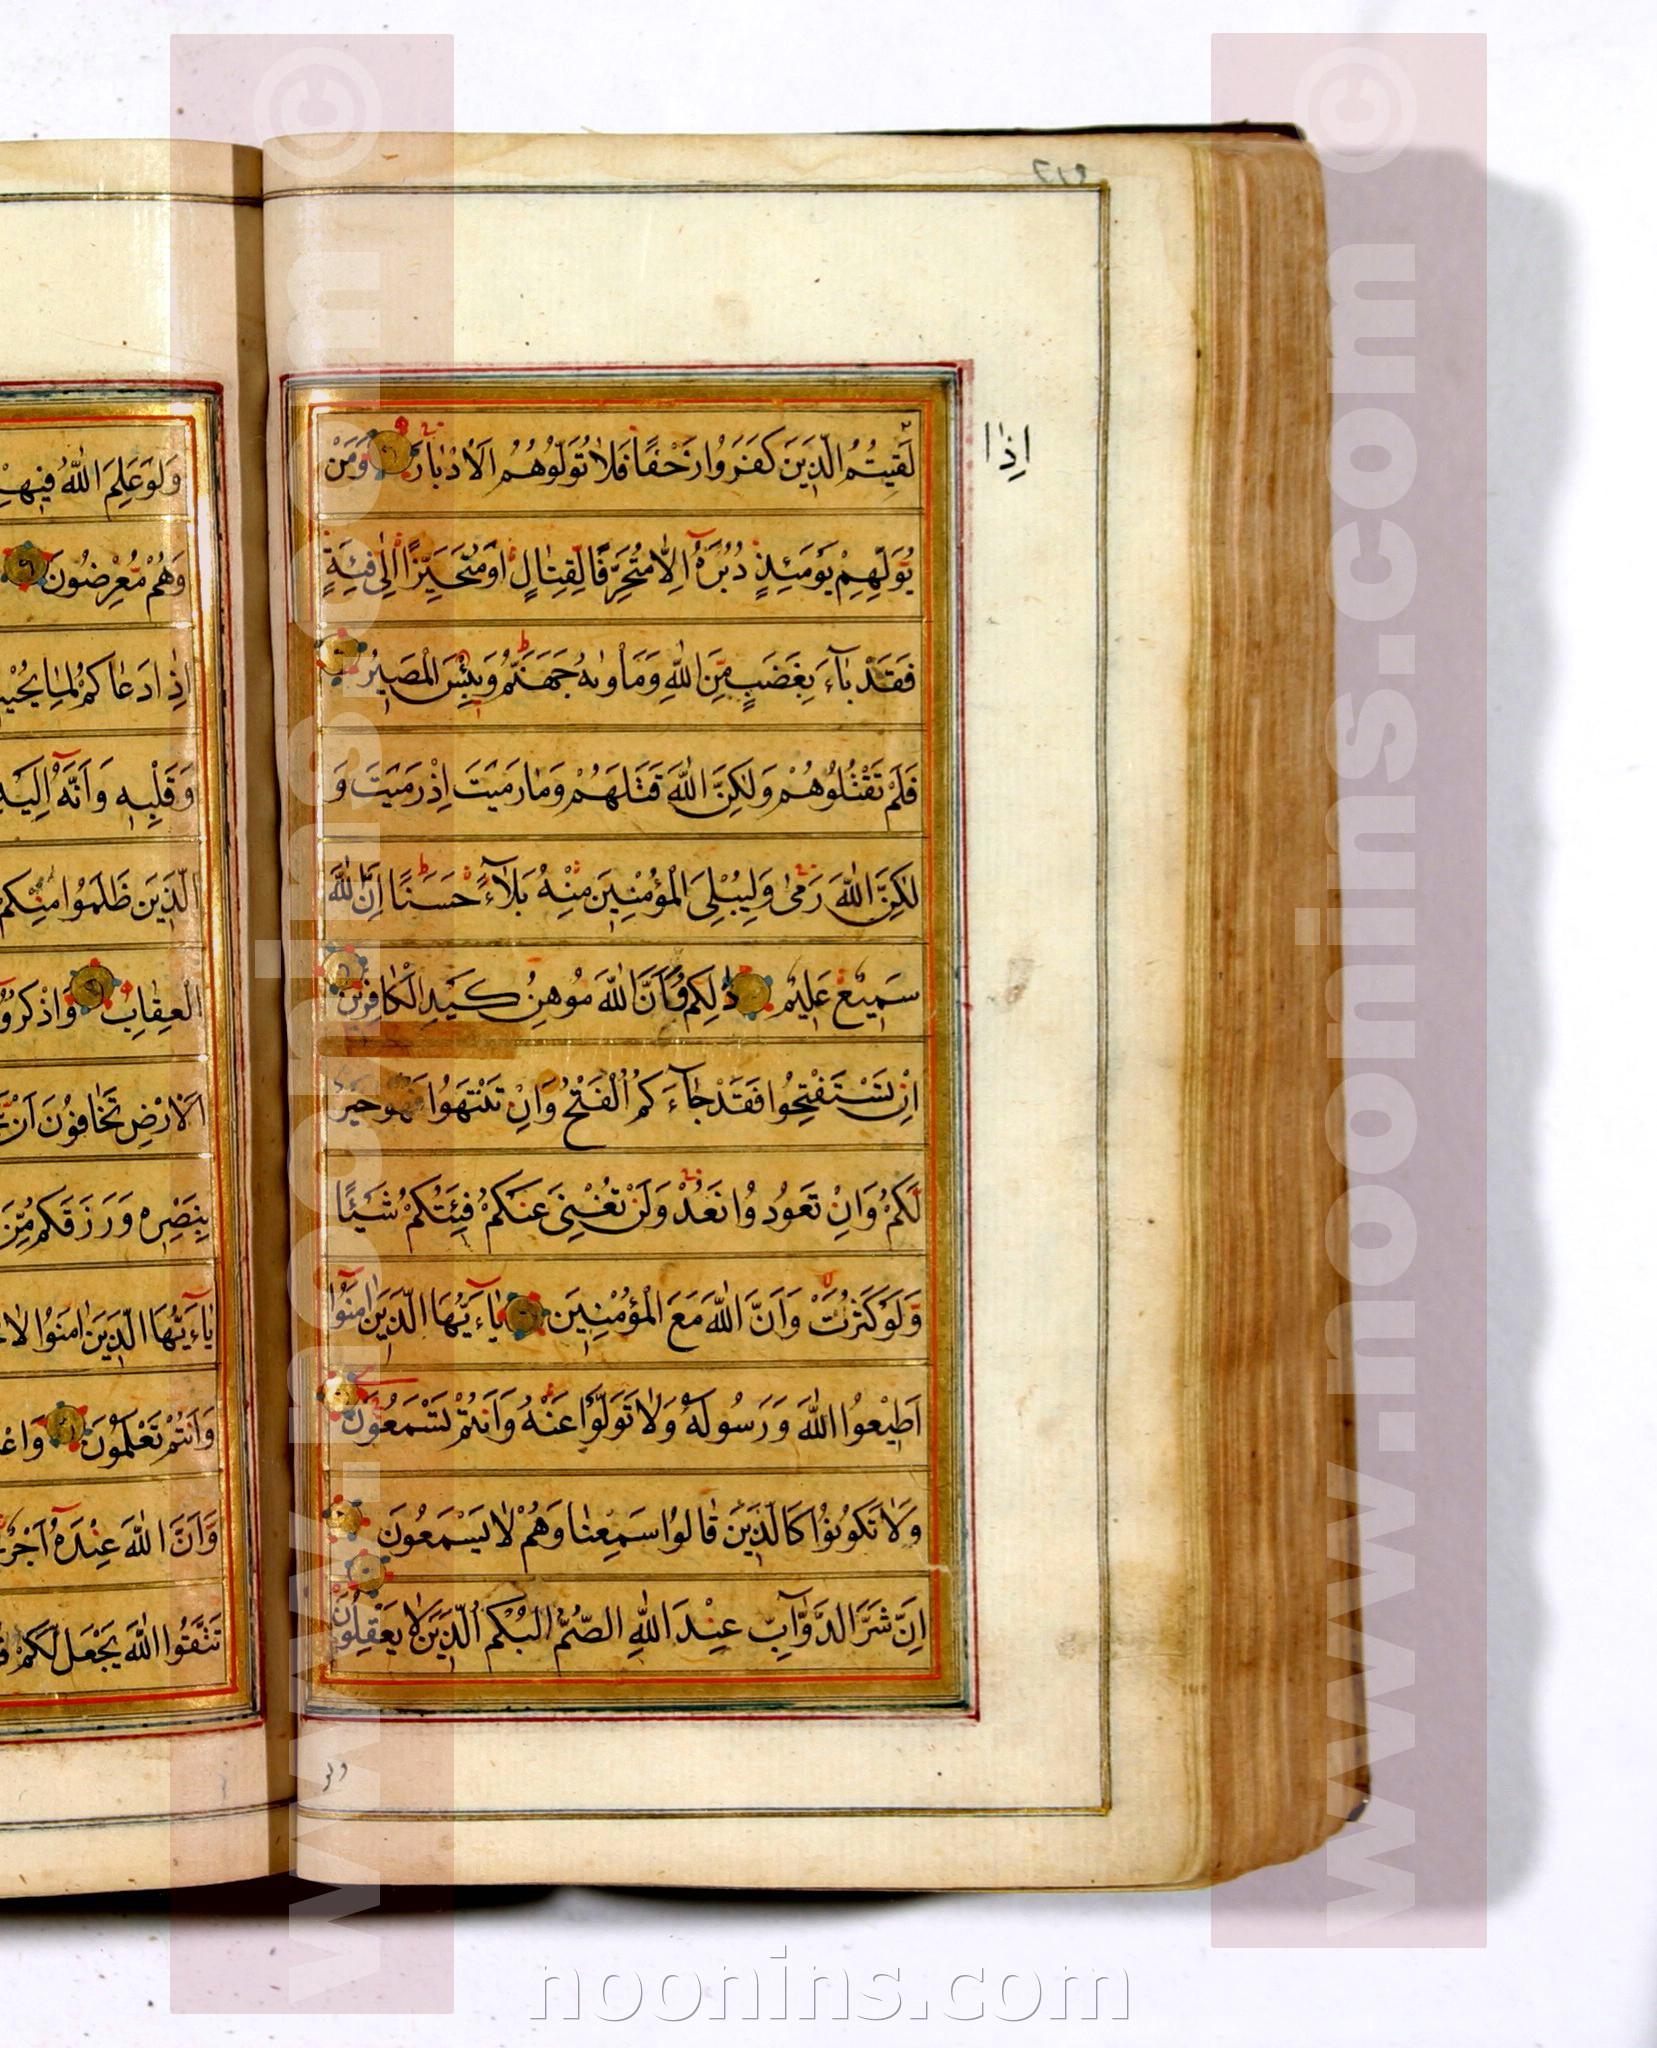 اِذٰا
لَّقِيتُمُ الَّذِينَ كَفَرُوا زَحْفًا فَلٰا تُوَلُّوهُمُ الْاَدْبٰارَ وَمَنْ
يُوَلِّهِمْ يَوْمَئِذٍ دُبُرَهُٓ اِلّٰا مُتَحَرِّفًا لِقِتٰالٍ اَوْ مُتَحَيِّزًا اِلٰى فِئَةٍ
فَقَدْ بٰآءَ بِغَضَبٍ مِّنَ اللّٰهِ وَمَاْوٰىهُ جَهَنَّمُ وَبِئْسَ الْمَصِيرُ
فَلَمْ تَقْتُلُوهُمْ وَلٰكِنَّ اللّٰهَ قَتَلَهُمْ وَمٰا رَمَيْتَ اِذْ رَمَيْتَ وَ
لٰكِنَّ اللّٰهَ رَمٰى وَلِيُبْلِىَ الْمُؤْمِنِينَ مِنْهُ بَلٰآءً حَسَنًا اِنَّ اللّٰهَ
سَمِيعٌ عَلِيمٌ ذٰلِكُمْ وَاَنَّ اللّٰهَ مُوهِنُ كَيْدِ الْكٰافِرِينَ
اِنْ تَسْتَفْتِحُوا فَقَدْ جٰآءَكُمُ الْفَتْحُ وَاِنْ تَنْتَهُوا فَهُوَ خَيْرٌ
لَّكُمْ وَاِنْ تَعُودُوا نَعُدْ وَلَنْ تُغْنِىَ عَنْكُمْ فِئَتُكُمْ شَيْئًا
وَّلَوْ كَثُرَتْ وَاَنَّ اللّٰهَ مَعَ الْمُؤْمِنِينَ يٰآءَيُّهَا الَّذِينَ اٰمَنُوٓا
اَطِيعُوا اللّٰهَ وَرَسُولَهُ وَلٰا تَوَلَّوْا عَنْهُ وَاَنْتُمْ تَسْمَعُونَ
وَلٰا تَكُونُوا كَالَّذِينَ قٰالُوا سَمِعْنٰا وَهُمْ لٰا يَسْمَعُونَ
اِنَّ شَرَّ الدَّوَٓابِّ عِنْدَ اللّٰهِ الصُّمُّ الْبُكْمُ الَّذِينَ لٰا يَعْقِلُونَ
ولو
وَلَوْ عَلِمَ اللّٰهُ فِيهِمْ
وَهُمْ مُعْرِضُونَ
اِذٰا دَعٰاكُمْ لِمٰا يُحْيِي
وَقَلْبِهِ وَاَنَّهُٓ اِلَيْهِ
الَّذِينَ ظَلَمُوا مِنْكُمْ
الْعِقٰابِ وَاذْكُرُوٓا
الْاَرْضِ تَخٰافُونَ اَنْ
بِنَصْرِهِ وَرَزَقَكُمْ مِّنَ
يٰآءَيُّهَا الَّذِينَ اٰمَنُوا لٰا
وَاَنْتُمْ تَعْلَمُونَ وَاعْ
وَّاَنَّ اللّٰهَ عِنْدَهُٓ اَجْرٌ
تَتَّقُوا اللّٰهَ يَجْعَلْ لَّكُمْ
www.noonins.com ©
www.noonins.com ©
noonins.com